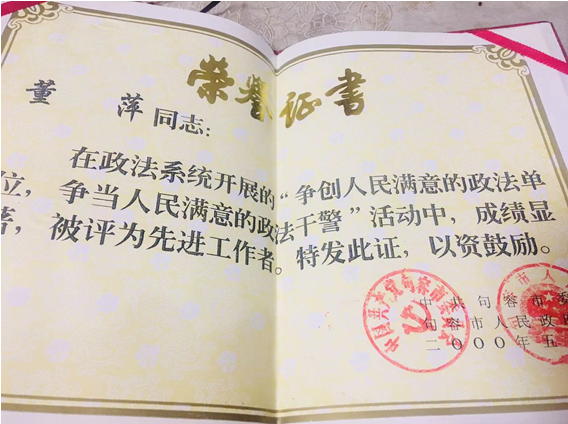 荣誉证书
董 萍 同志：
在政法系统开展的“争创人民满意的政法单
位，争当人民满意的政法干警”活动中，成绩显
著，被评为先进工作者。特发此证，以资鼓励。
中共句容市委
句容市人民政府
二〇〇〇年五